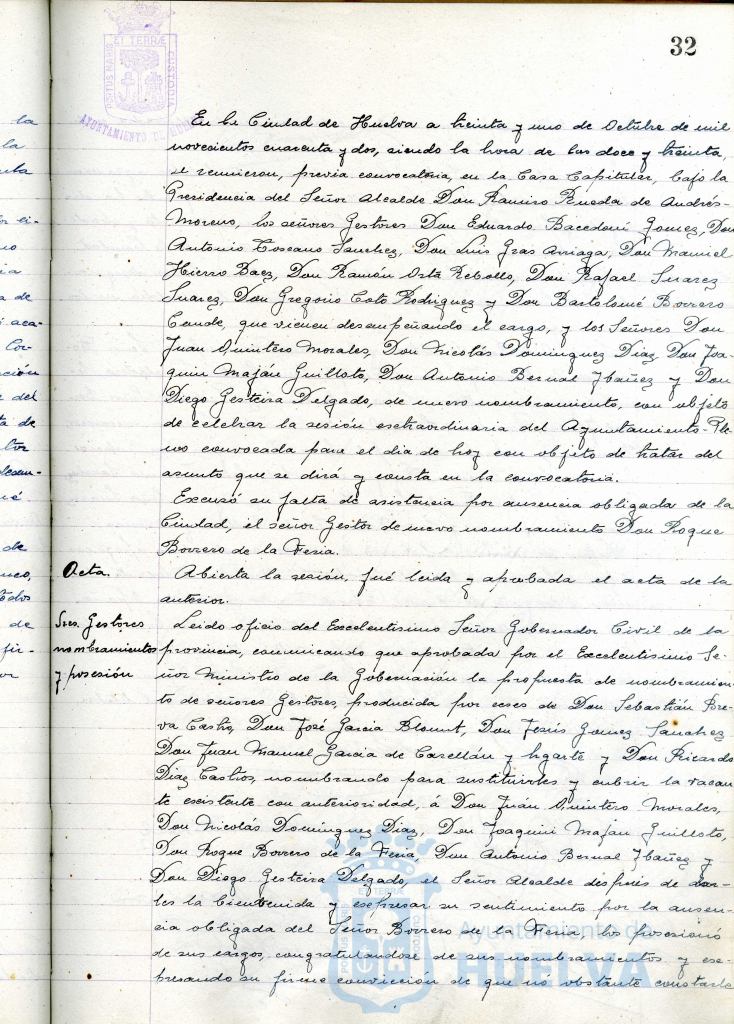 32
PORTUS MARIS ET TERRÆ CUSTODIA
AYUNTAMIENTO DE HUELVA
En la Ciudad de Huelva a treinta y uno de Octubre de mil
novecientos cuarenta y dos, siendo la hora de las doce y treinta,
se reunieron, previa convocatoria, en la Casa Capitular, bajo la
Presidencia del Señor Alcalde Don Ramiro Rueda de Andrés-
Moreno, los señores Gestores Don Eduardo Bacedoni Gomez, Don
Antonio Toscano Sanchez, Don Luis Gras Arriaga, Don Manuel
Hierro Baez, Don Ramón Orta Rebollo, Don Rafael Suarez
Suarez, Don Gregorio Coto Rodriguez y Don Bartolomé Borrero
Conde, que vienen desempeñando el cargo, y los Señores Don
Juan Quintero Morales, Don Nicolás Dominguez Diaz, Don Joa-
quin Maján Guilloto, Don Antonio Bernal Ybañez y Don
Diego Gesteira Delgado, de nuevo nombramiento, con objeto
de celebrar la sesión estraordinaria del Ayuntamiento-Ple-
no convocada para el dia de hoy con objeto de tratar del
asunto que se dirá y consta en la convocatoria.
Excusó su falta de asistencia por ausencia obligada de la
Ciudad, el señor Gestor de nuevo nombramiento Don Roque
Borrero de la Feria.
Acta.
Abierta la sesión, fué leida y aprobada el acta de la
anterior.
Sres. Gestores
nombramientos
y posesión
Leido oficio del Excelentisimo Señor Gobernador Civil de la
provincia, comunicando que aprobada por el Excelentisimo Se-
ñor Ministro de la Gobernación la propuesta de nombramien-
to de señores Gestores, producida por ceses de Don Sebastián Bre-
va Castro, Don José Garcia Blount, Don Jesús Gomez Sanchez
Don Juan Manuel Garcia de Casellán y Ugarte y Don Ricardo
Diaz Castros, nombrando para sustituirles y cubrir la vacan-
te esistente con anterioridad, á Don Juan Quintero Morales,
Don Nicolás Domínguez Diaz, Don Joaquin Maján Guilloto,
Don Roque Borrero de la Feria, Don Antonio Bernal Ybañez y
Don Diego Gesteira Delgado, el Señor Alcalde después de dar-
les la bienvenida y espresar su sentimiento por la ausen-
cia obligada del Señor Borrero de la Feria, los posesionó
de sus cargos, congratulandose de sus nombramientos y es-
presando su firme convicción de que nó obstante constarle
Ayuntamiento de
HUELVA